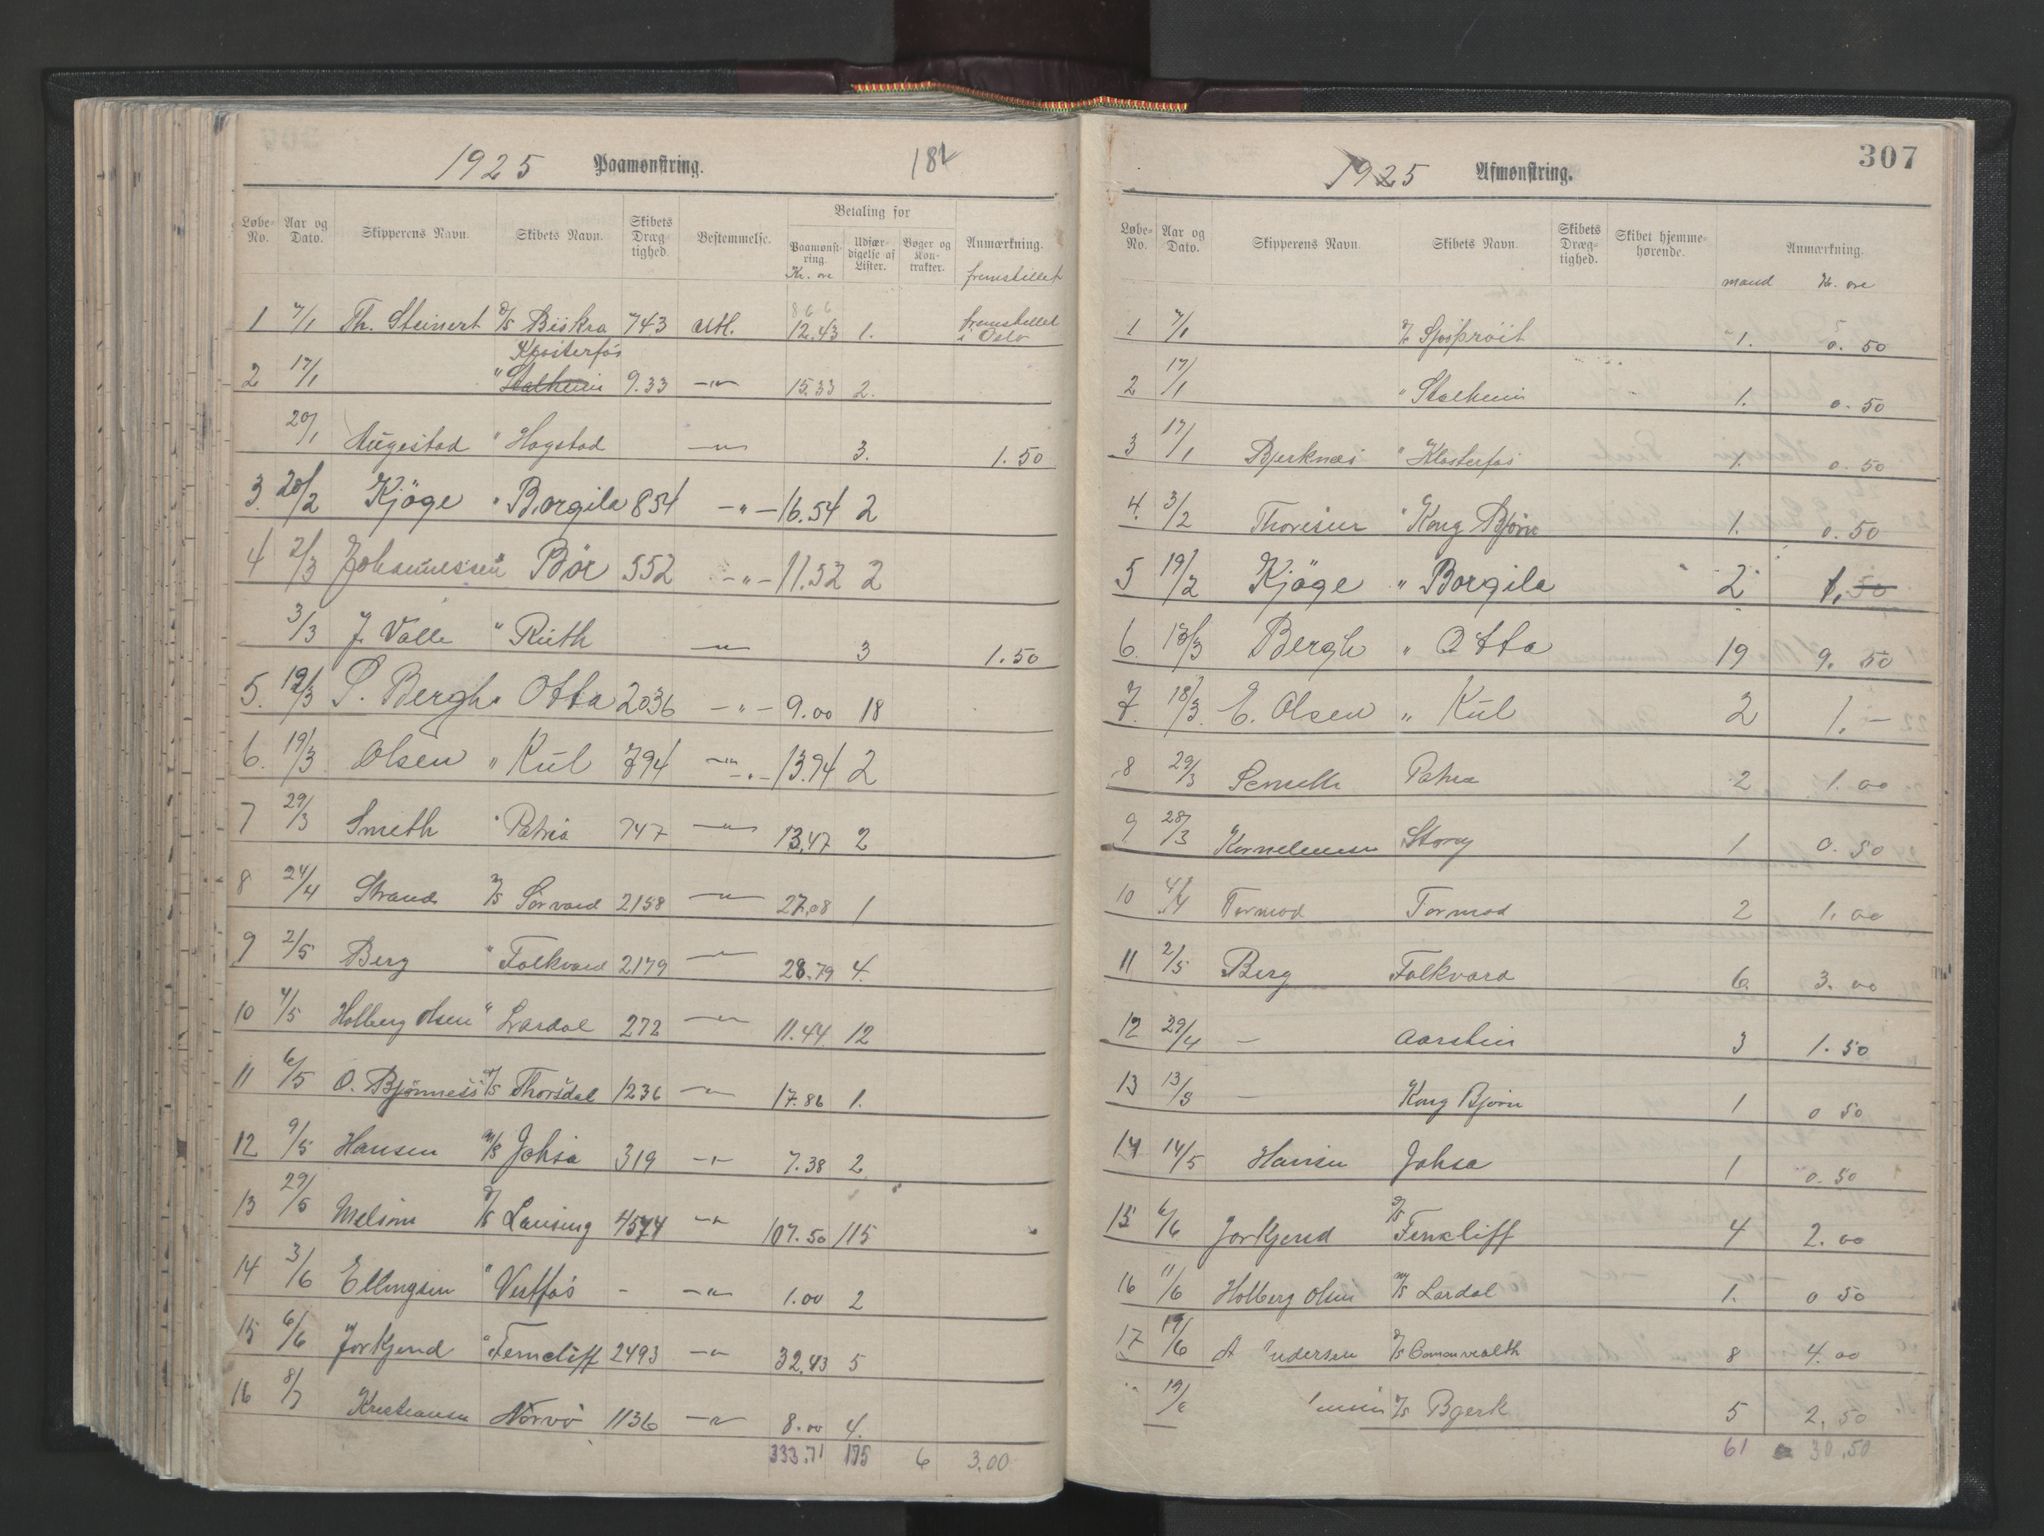 1925 Paamønstring. 182
Løbe-No. Aar og Dato. Skipperens Navn. Skibets Navn. Skibets Dræg-tighed. Bestemmelse. Betaling for Paamønst-ring. Kr. øre Udfær-digelse af Lister. Bøger og Kon-trakter. Anmærkning. fremstillet
1 7/1 Th. Steinert D/S Biskra 743 Utl. 866 12.43 1. fremstillet i Oslo
Klosterfos
2 17/1 " Stalheim 9.33 —"— 15.33 2.
20/1 Augestad " Hogstad —"— 3. 1.50
3. 20/2 Kjöge " Borgila 854 —"— 16.54 2
4 2/3 Johannessen " Bör 552 —"— 11.52 2
3/3 J. Valle " Ruth —"— 3 1.50
5. 19/3 S. Bergh " Otta 2036 —"— 9.00 18
6. 19/3 Olsen " Kul 794 —"— 13.94 2
7 29/3 Smith " Patria 747 —"— 13.47 2
8 24/4 Strand D/S Sorvard 2158 —"— 27.08 1
9 2/5 Berg " Folkvard 2179 —"— 28.79 4.
10 4/5 Holberg Olsen " Lardal 272 —"— 11.44 12
11 6/5 O. Bjønness D/S Thorsdal 1236 —"— 17.86 1.
12 9/5 Hansen M/S Johsa 319 —"— 7.38 2
13 29/5 Melsom D/S Lansing 4574 —"— 107.50 115
14 3/6 Ellingsen " Vestfos - —"— 1.00 2
15 6/6 Jorkjend " Ferncliff 2493 —"— 32.43 5
16 8/7 Kristiansen Norvø 1136 —"— 8.00 4.
333.71 175 6 3.00
307
1925 Afmønstring.
Løbe-No. Aar og Dato. Skipperens Navn. Skibets Navn. Skibets Dræg-tighed. Skibet hjemme-hørende. Anmærkning. mand Kr. øre
1 7/1 1. 0.50
2 17/1 " Stalheim 1. 0.50
3 17/1 Bjerknæs " Klosterfos 1. 0.50
4. 3/2 Thoresen " Kong Bjørn 1. 0.50
5 19/2 Kjöge " Borgila 2 1.50
6. 18/3 Bergh " Otta 19 9.50
7. 18/3. E. Olsen " Kul 2 1.-
8 29/3 Smith Patria 2 1.00
9 28/3 Korneliussen Story 1 0.50
10 4/4 Tormod Tormod 2 1.00
11 2/5 Berg Folkvard 6. 3.00
12 29/4 — Aarstein 3 1.50
13 13/3 — Kong Bjørn 1 0 50
14 14/5 Hansen Johsa 1 0.50
15 6/6 Jorkjend D/S Ferncliff 4 2.00
16 11/6 Holberg Olsen M/S Lardal 1. 0 50
17 19/6 A Andersen D/S Comonvealth 8 4.00
19/6 D/S Bjerk 5 2.50
61 30.50